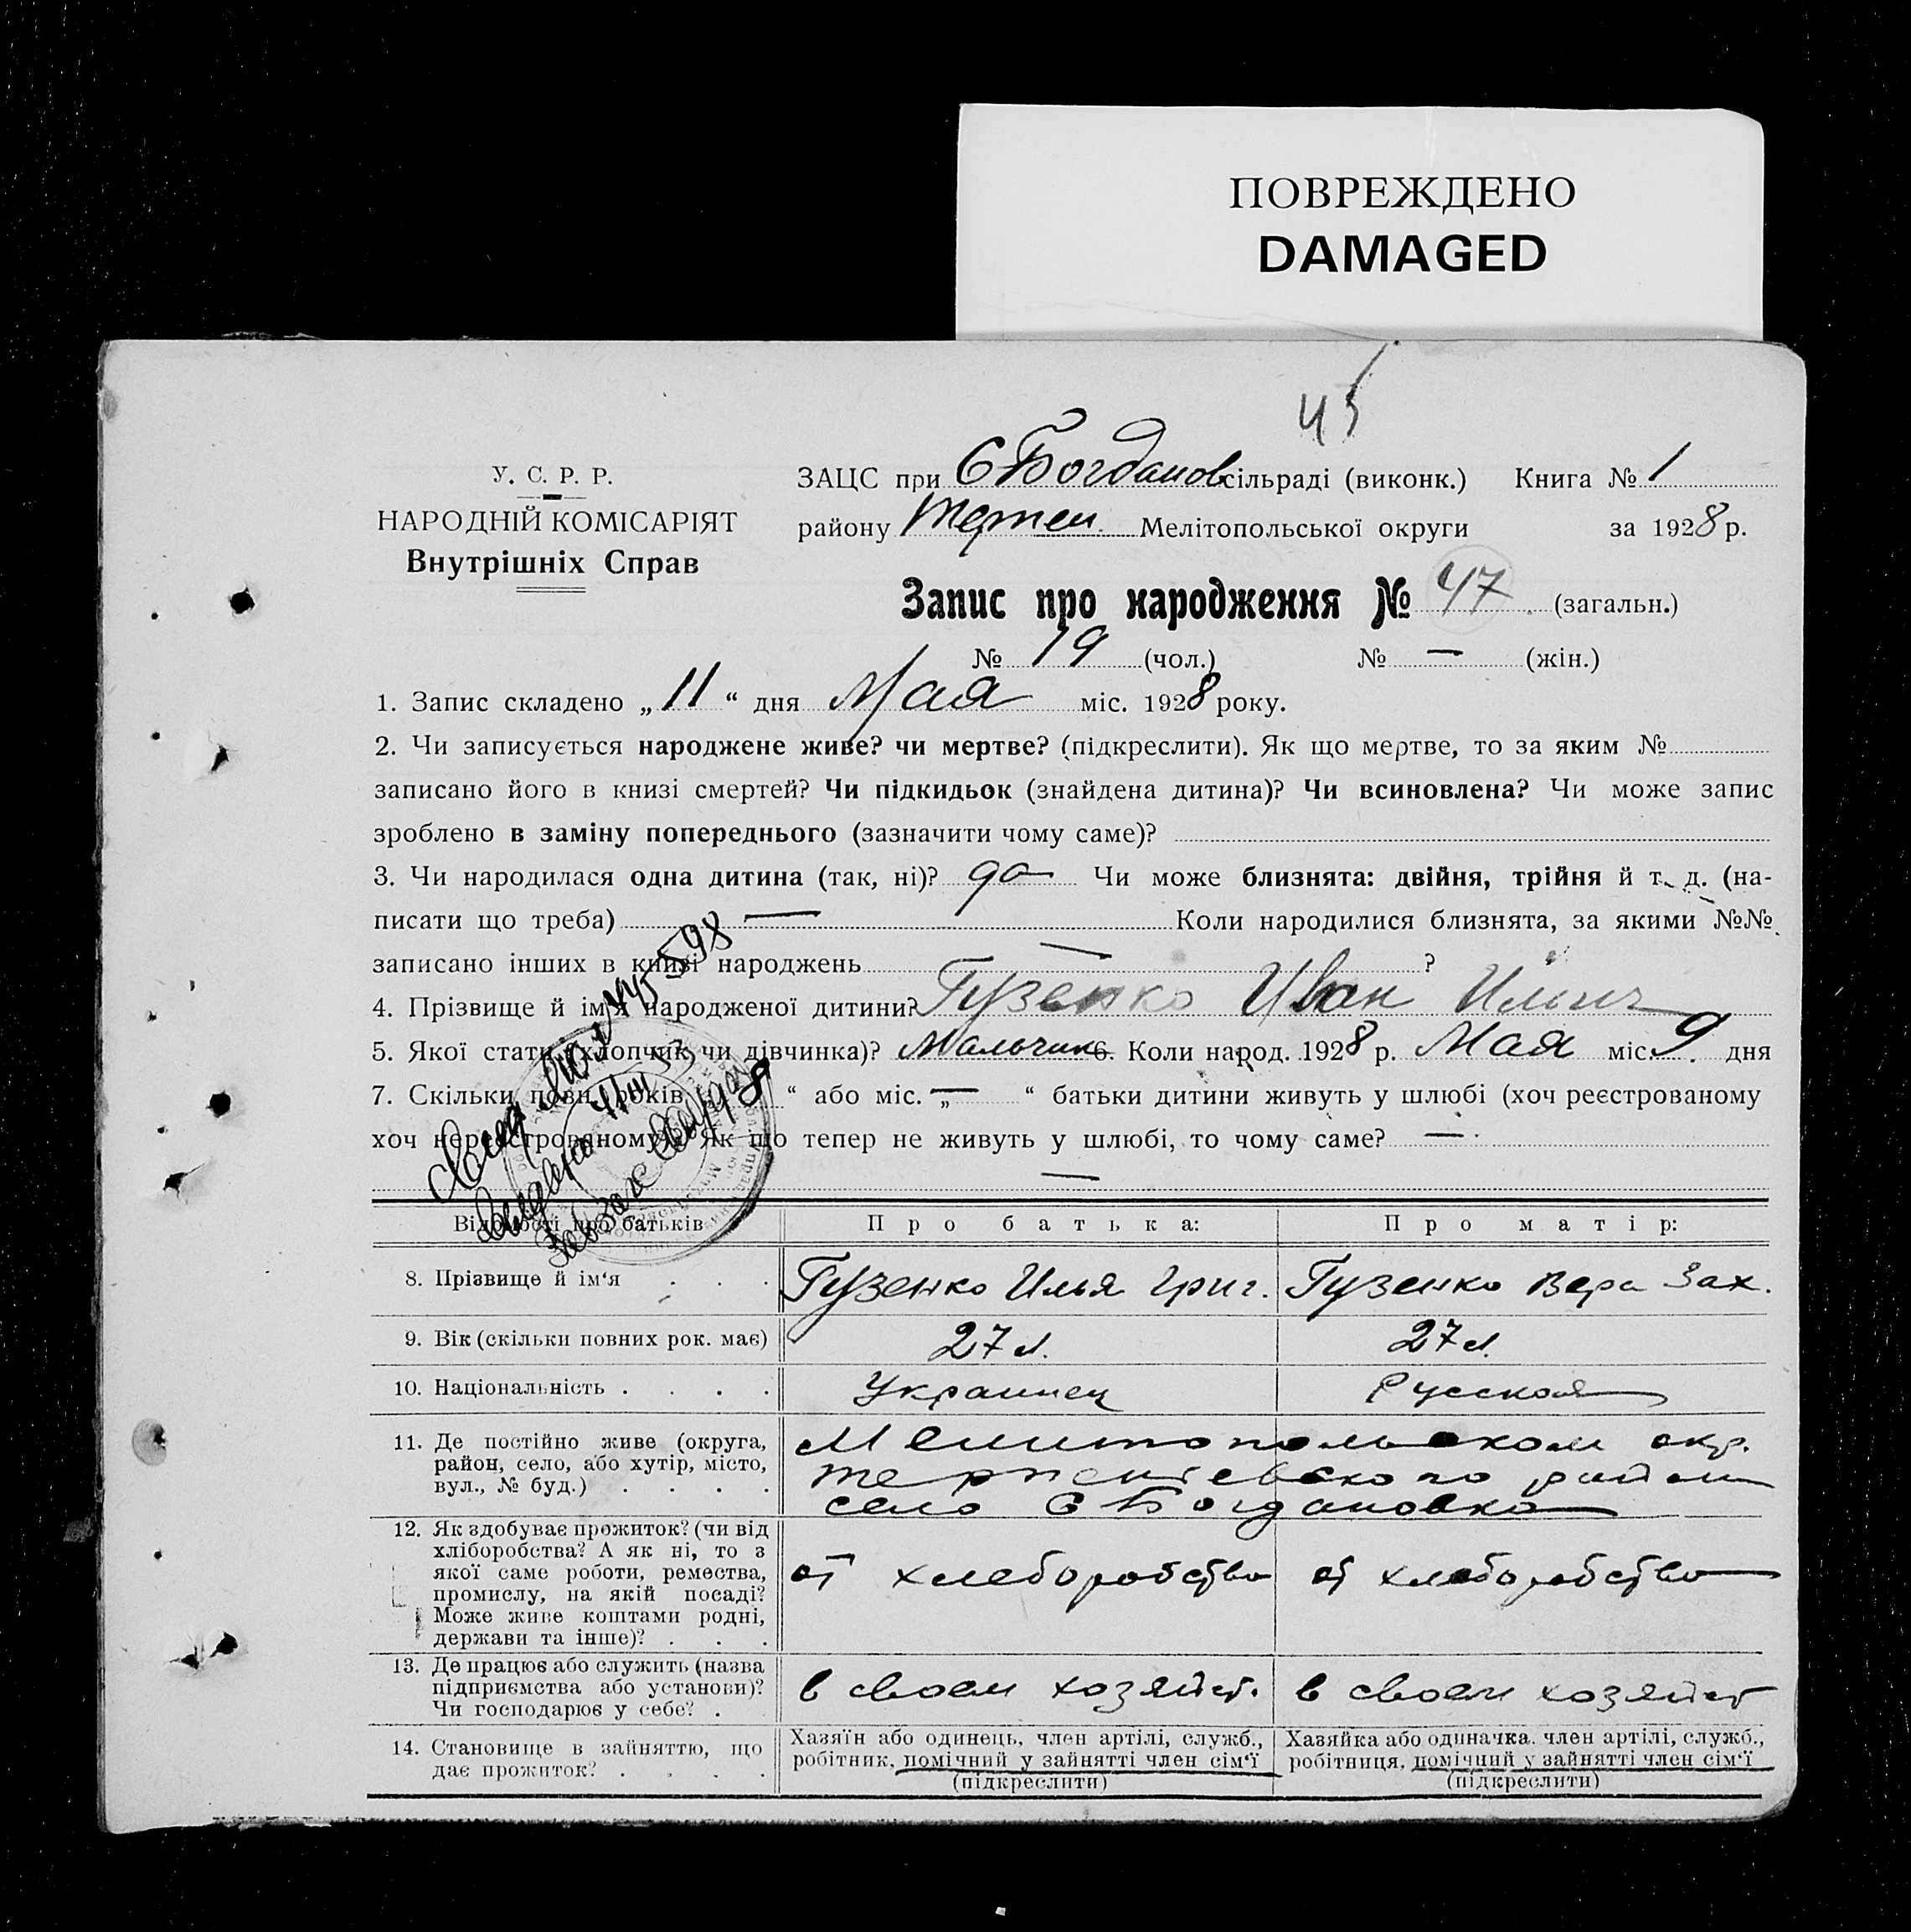 ПОВРЕЖДЕНО
DAMAGED
45
У. С. Р. Р.
НАРОДНІЙ КОМІСАРІЯТ
Внутрішніх Справ
ЗАЦС при С Богданов сільраді (виконк.) Книга № 1
району Терпен. Мелітопольської округи за 1928 р.
Запис про народження № 47 (загальн.)
№ 19 (чол.) № — (жін.)
1. Запис складено „ 11 “ дня Мая міс. 1928 року.
2. Чи записується народжене живе? чи мертве? (підкреслити). Як що мертве, то за яким №
записано його в книзі смертей? Чи підкидьок (знайдена дитина)? Чи всиновлена? Чи може запис
зроблено в заміну попереднього (зазначити чому саме)?
3. Чи народилася одна дитина (так, ні)? да Чи може близнята: двійня, трійня й т. д. (на-
писати що треба) — Коли народилися близнята, за якими №№
записано інших в книзі народжень — ?
4. Прізвище й ім'я народженої дитини? Гузенко Иван Ильич
5. Якої стати (хлопчик чи дівчинка)? Мальчик 6. Коли народ. 1928 р. Мая міс. 9 дня
7. Скільки повн. років 8 “ або міс. „ — “ батьки дитини живуть у шлюбі (хоч реєстрованому
хоч нереєстрованому)? Як що тепер не живуть у шлюбі, то чому саме? —
—
Відомості про батьків Про батька: Про матір:
8. Прізвище й ім'я . . . Гузенко Илья Григ. Гузенко Вера Зах.
9. Вік (скільки повних рок. має) 27 л. 27 л.
10. Національність . . . . Украинец Русская
11. Де постійно живе (округа,
район, село, або хутір, місто,
вул., № буд.) . . . .
Мелитопольском окр.
Терпениевского район
село С Богдановка
12. Як здобуває прожиток? (чи від
хліборобства? А як ні, то з
якої саме роботи, ремества,
промислу, на якій посаді?
Може живе коштами родні,
держави та інше)? . . .
от хлеборобства от хлеборобства
13. Де працює або служить (назва
підприємства або установи)?
Чи господарює у себе? .
в своем хозяйст. в своем хозяйст
14. Становище в зайняттю, що
дає прожиток? . . . .
Хазяїн або одинець, член артілі, служб.,
робітник, помічний у зайнятті член сім'ї
(підкреслити)
Хазяйка або одиначка. член артілі, служб.,
робітниця, помічний у зайнятті член сім'ї
(підкреслити)